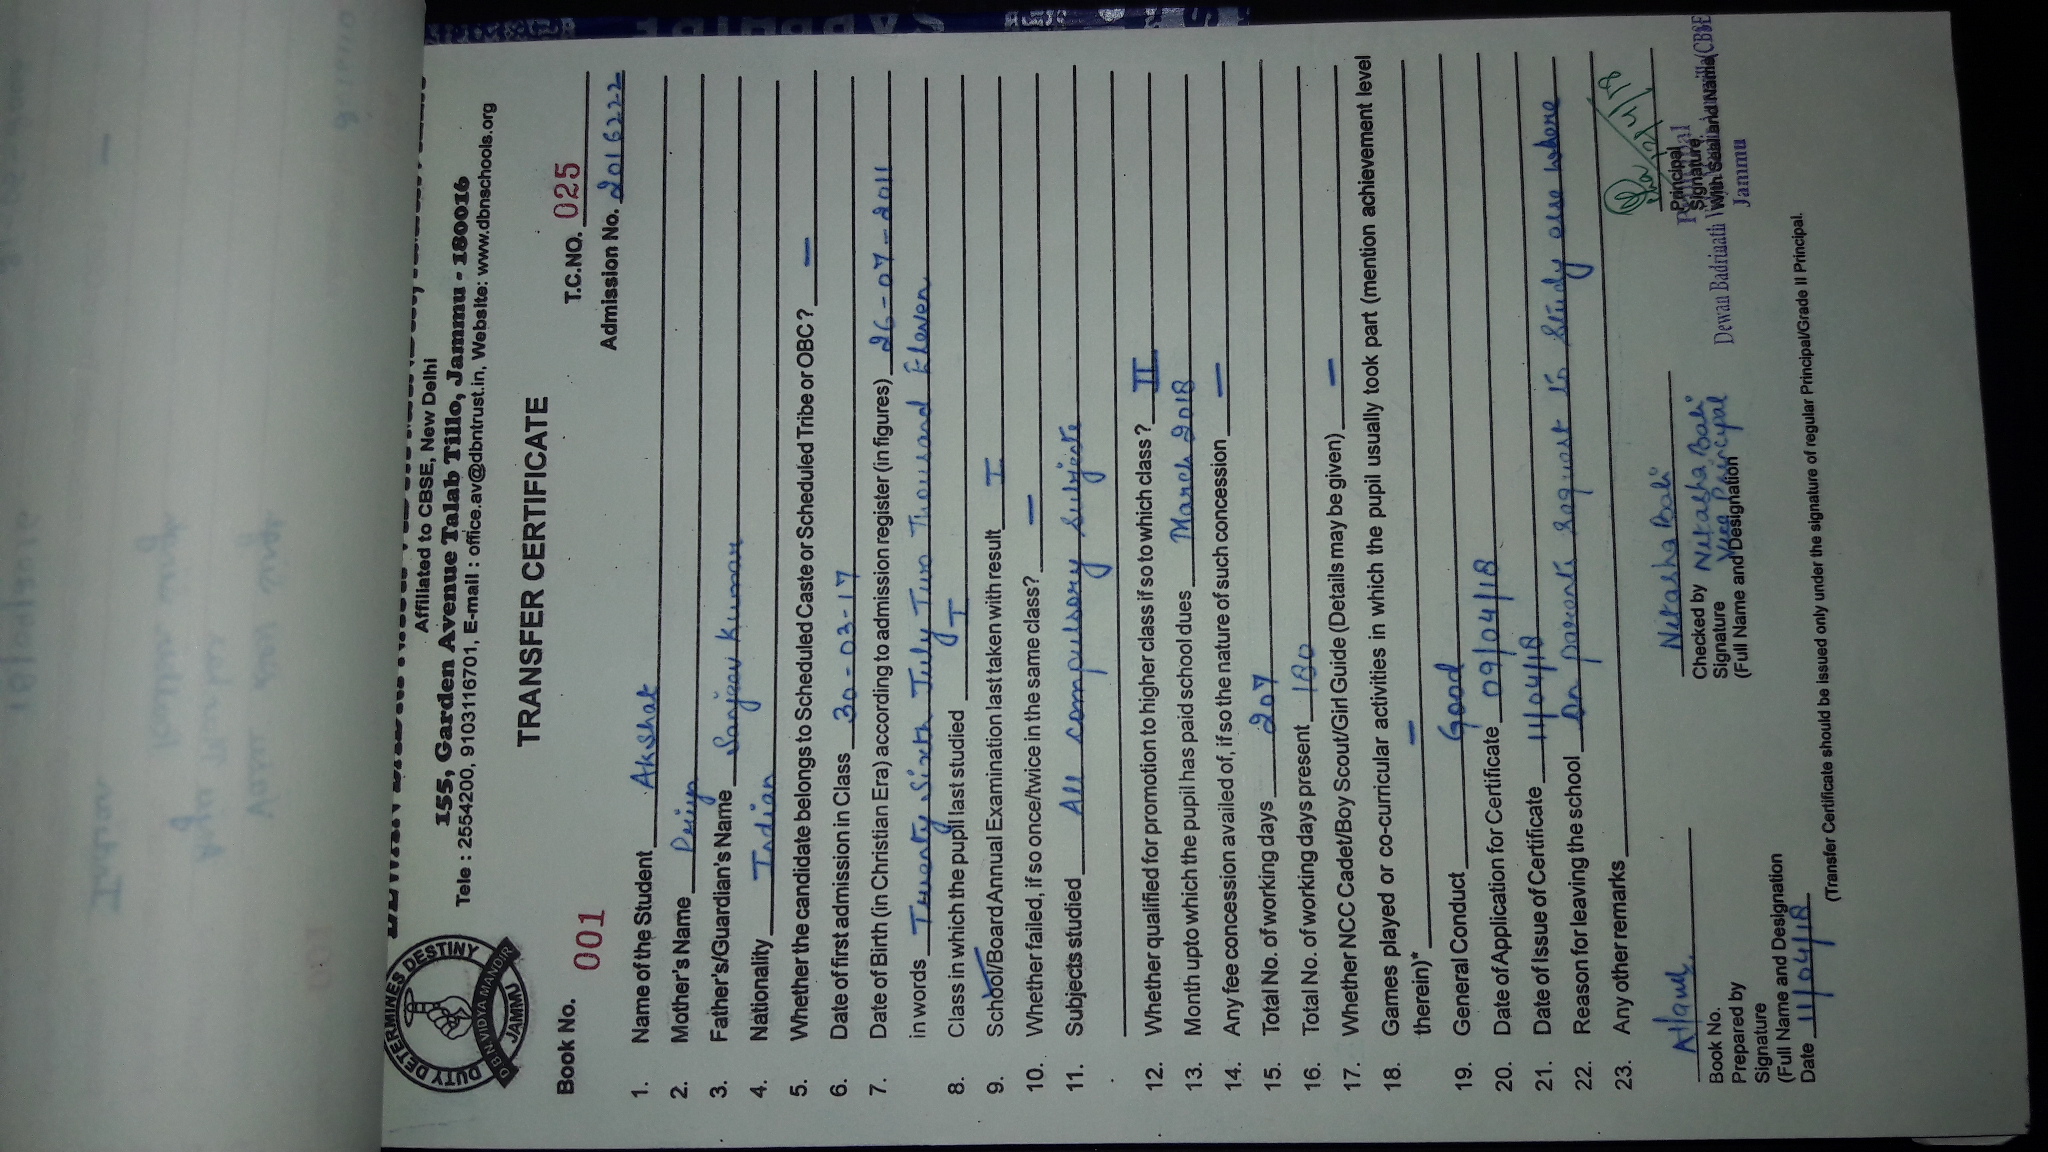 DUTY DETERMINES DESTINY
D B N VIDYA MANDIR
JAMMU
Affiliated to CBSE, New Delhi
155, Garden Avenue Talab Tillo, Jammu - 180016
Tele : 2554200, 9103116701, E-mail : office.av@dbntrust.in, Website: www.dbnschools.org
TRANSFER CERTIFICATE
Book No. 001 T.C.NO. 025
Admission No. 20016222
1. Name of the Student Akshat
2. Mother's Name Priya
3. Father's/Guardian's Name Sanjeev Kumar
4. Nationality Indian
5. Whether the candidate belongs to Scheduled Caste or Scheduled Tribe or OBC? —
6. Date of first admission in Class 30-03-17
7. Date of Birth (in Christian Era) according to admission register (in figures) 26-07-2011
in words Twenty Sixth July Two Thousand Eleven
8. Class in which the pupil last studied I
9. School/Board Annual Examination last taken with result I
10. Whether failed, if so once/twice in the same class? —
11. Subjects studied All compulsory subjects
12. Whether qualified for promotion to higher class if so to which class? II
13. Month upto which the pupil has paid school dues March 2018
14. Any fee concession availed of, if so the nature of such concession —
15. Total No. of working days 207
16. Total No. of working days present 180
17. Whether NCC Cadet/Boy Scout/Girl Guide (Details may be given) —
18. Games played or co-curricular activities in which the pupil usually took part (mention achievement level
therein)* —
19. General Conduct Good
20. Date of Application for Certificate 09/04/18
21. Date of Issue of Certificate 11/04/18
22. Reason for leaving the school On parents request to study else where
23. Any other remarks
Book No.
Prepared by
Signature
(Full Name and Designation
Date 11/04/18
Netasha Bali
Checked by Netasha Bali
Signature Vice Principal
(Full Name and Designation
12/4/18
Principal
Signature
With Seal and Name
Dewan Badrinath (CBSE
Jammu
(Transfer Certificate should be issued only under the signature of regular Principal/Grade II Principal.